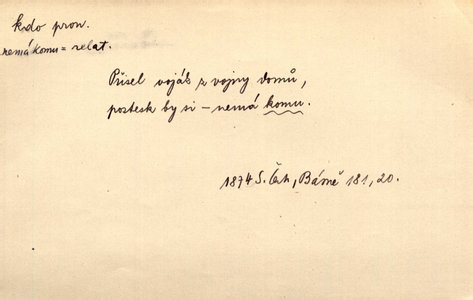 kdo pron.
nemá komu = relat.
Přišel voják z vojny domů,
postesk by si – nemá komu.
1874 S. Čech, Básně 181, 20.